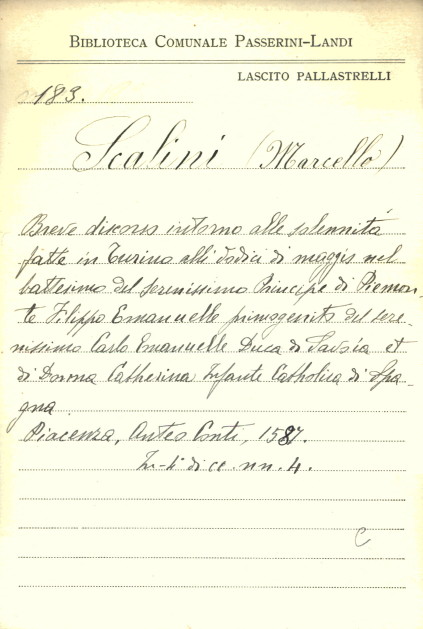 BIBLIOTECA COMUNALE PASSERINI-LANDI
LASCITO PALLASTRELLI
183.
Scalini (Marcello)
Breve discorso intorno alle solennità
fatte in Turino alli dodici di maggio nel
battesimo del serenissimo Principe di Piemon-
te Filippo Emanuelle primogenito del sere-
nissimo Carlo Emanuelle Duca di Savoia et
di Donna Catherina Infante Catholica di Spa-
gna.
Piacenza, Anteo Conti, 1587.
In-4 di cc. nn. 4.
C